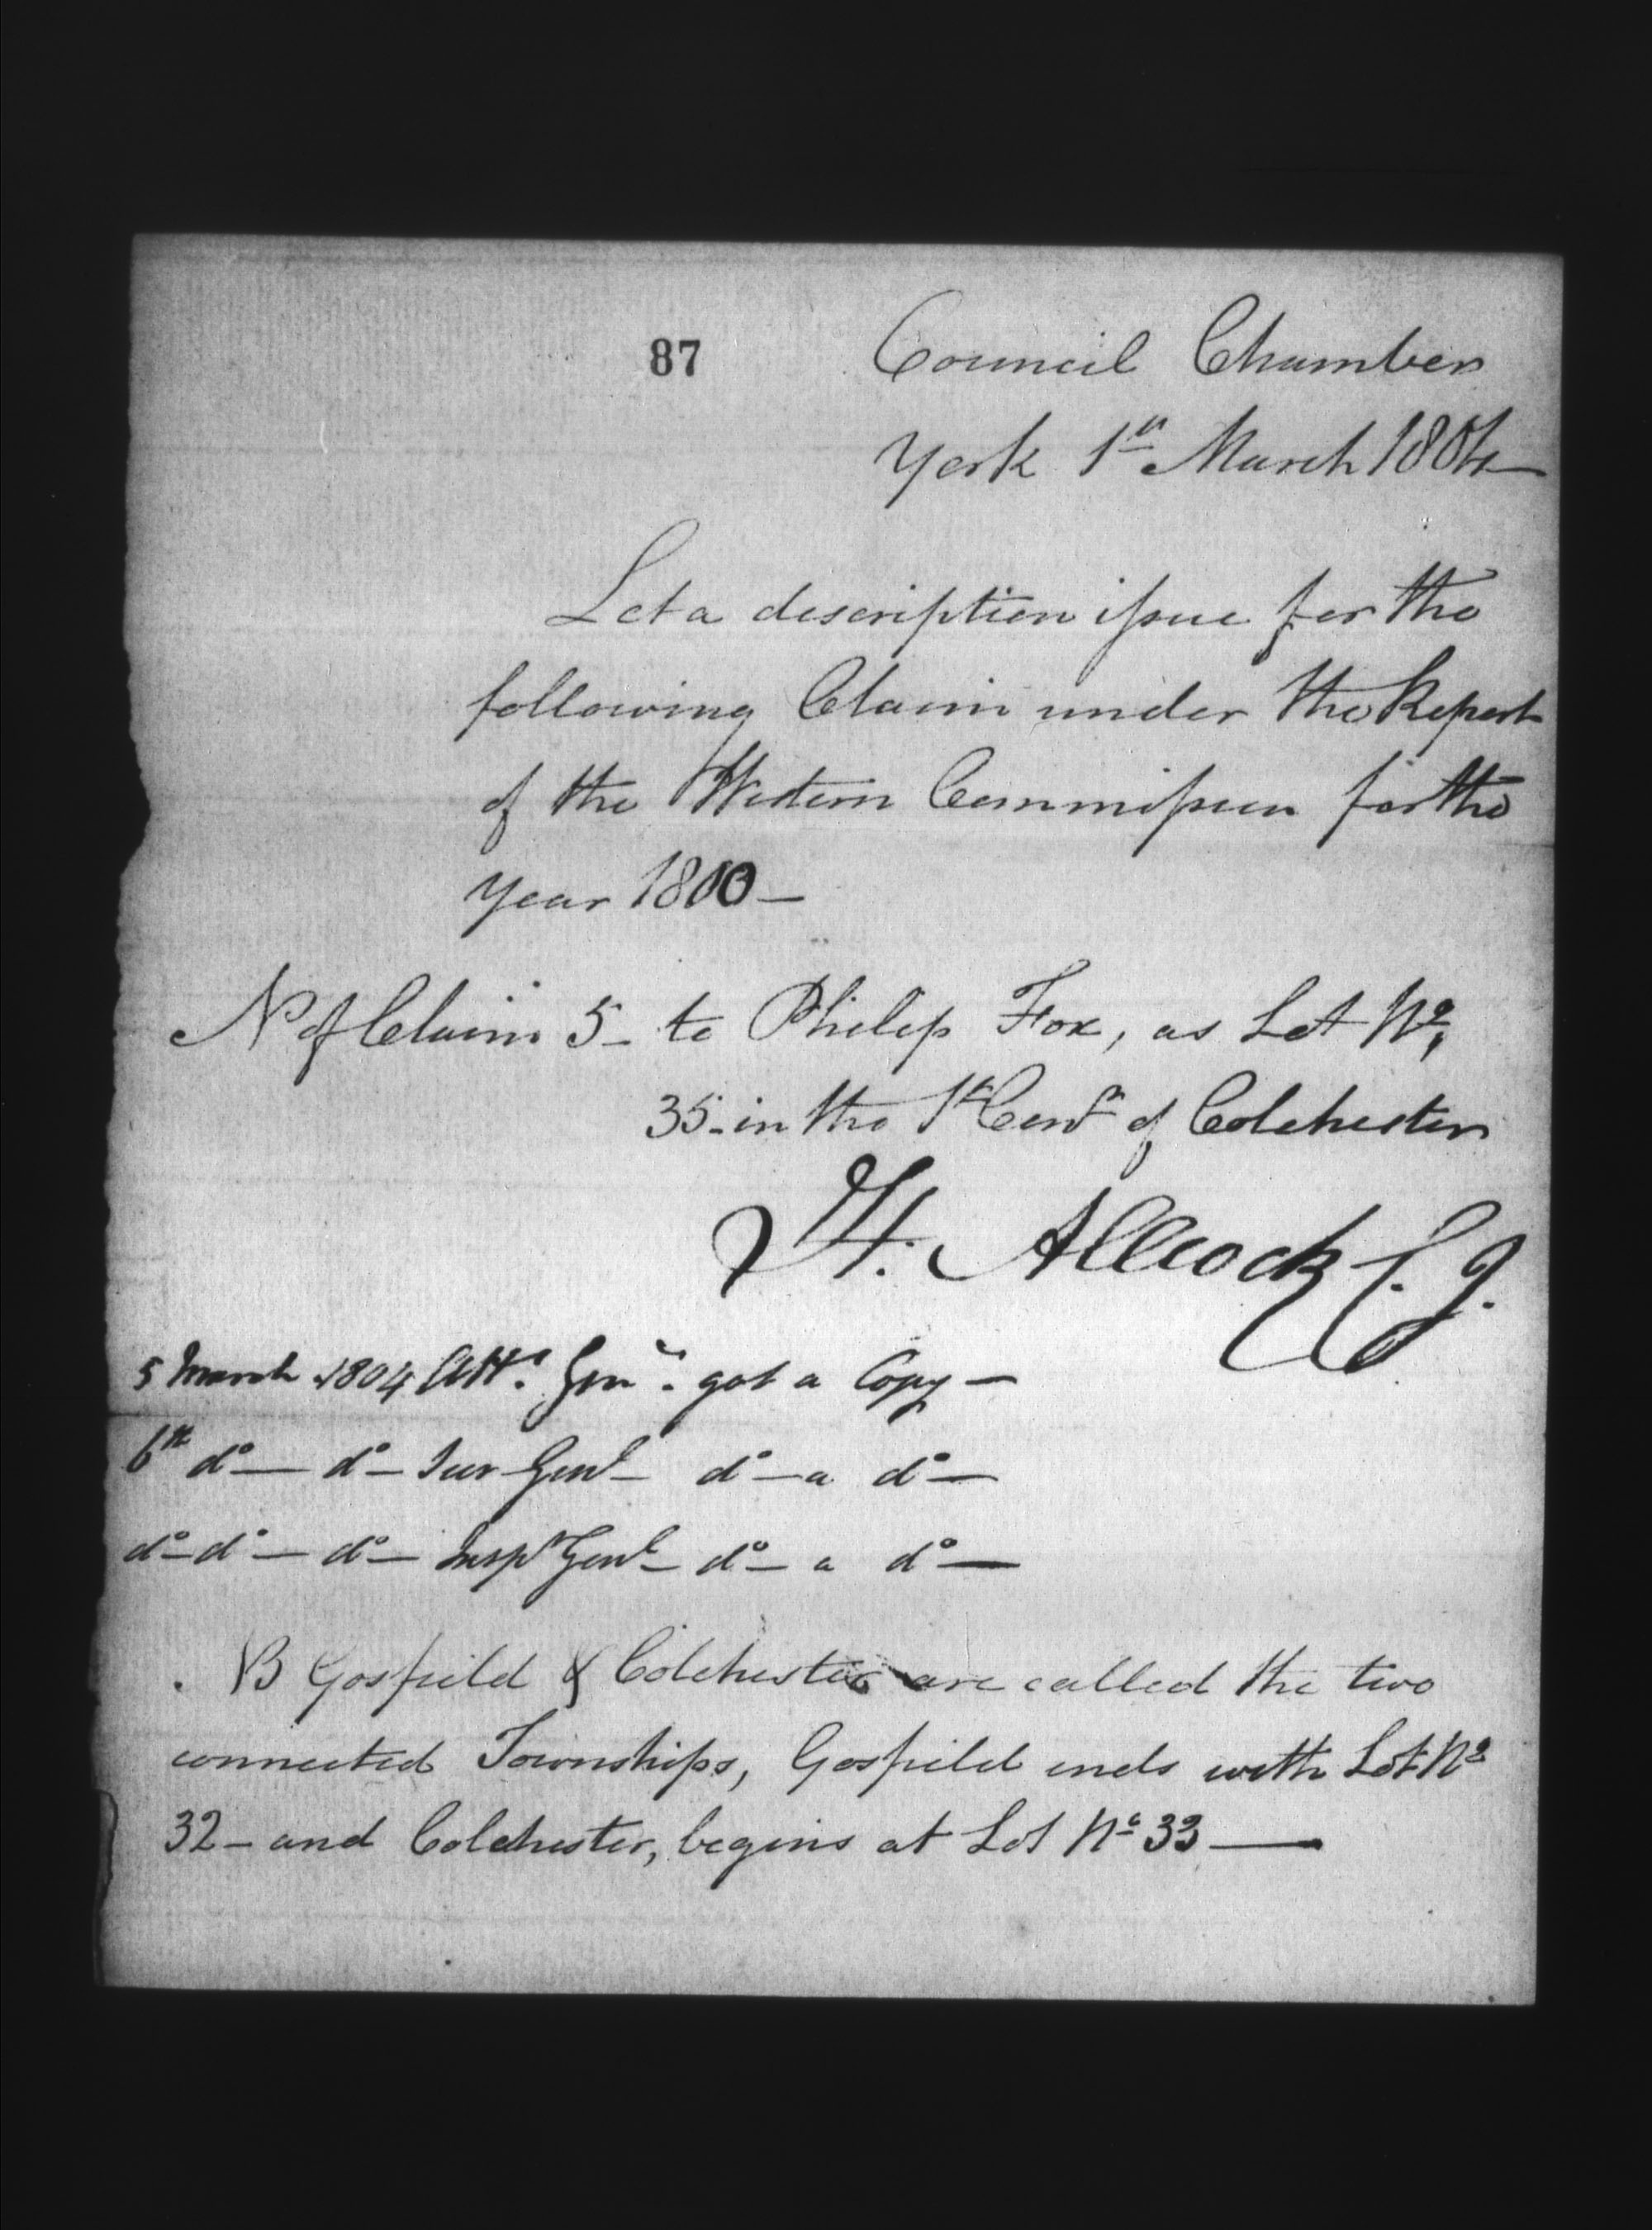 87
Council Chamber
York 1st March 1804
Let a description issue for the
following Claim under the Report
of the Western Commission for the
Year 1803 —
No of Claim 5 - to Philip Fox, as Lot No,
35 - in the 1st Conn of Colchester
H. Allcock C. J.
5 March 1804 Atty. Genl. got a Copy —
6th do — do — Sur Genl — do — a do —
do — do — do — Inspr Genl — do — a do —
NB Gosfield & Colchester are called the two
connected Townships, Gosfield ends with Lot No
32 - and Colchester, begins at Lot No 33 —